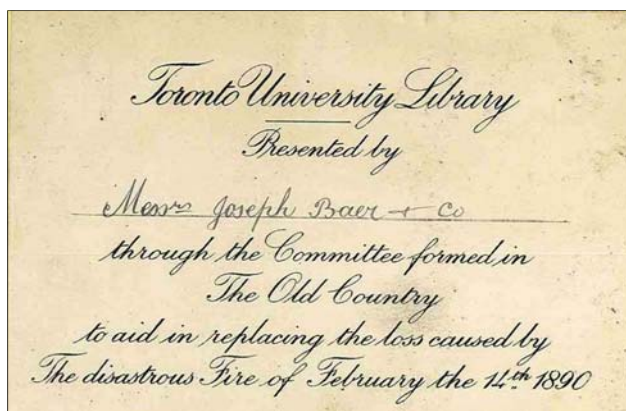 Toronto University Library
Presented by
Messrs Joseph Baer + Co
through the Committee formed in
The Old Country
to aid in replacing the loss caused by
The disastrous Fire of February the 14th 1890